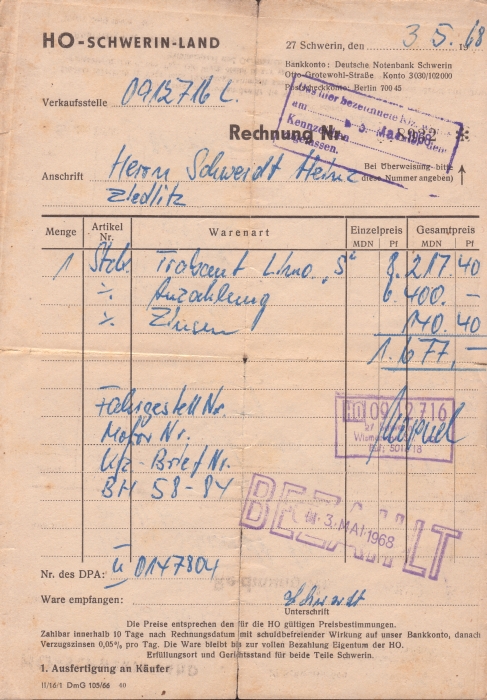 HO-SCHWERIN-LAND
27 Schwerin, den 3. 5. 1968
Bankkonto: Deutsche Notenbank Schwerin
Otto-Grotewohl-Straße Konto 3030/102000
Postscheckkonto: Berlin 700 45
Verkaufsstelle 0912716 L.
Das hier bezeichnete
am 3. Mai 1968
Kennzeichen
Rechnung Nr. *
Bei Überweisung bitte
diese Nummer angeben)
Anschrift Herrn Schweidt Heinz
Ziedlitz
Menge Artikel Nr. Warenart Einzelpreis Gesamtpreis
MDN Pf MDN Pf
1 Stck. Trabant Limo. „S“ 8.217.40
% Anzahlung 6.400.–
% Zinsen 140.40
1.677,–
Fahrgestell Nr.
Motor Nr.
Kfz-Brief Nr.
BH 58-84
HO 0912716
BEZAHLT
3. MAI 1968
Nr. des DPA: U 0147804
Ware empfangen: Schweidt
Unterschrift
Die Preise entsprechen den für die HO gültigen Preisbestimmungen.
Zahlbar innerhalb 10 Tage nach Rechnungsdatum mit schuldbefreiender Wirkung auf unser Bankkonto, danach
Verzugszinsen 0,05% pro Tag. Die Ware bleibt bis zur vollen Bezahlung Eigentum der HO.
Erfüllungsort und Gerichtsstand für beide Teile Schwerin.
1. Ausfertigung an Käufer
II/16/1 DmG 105/66 40